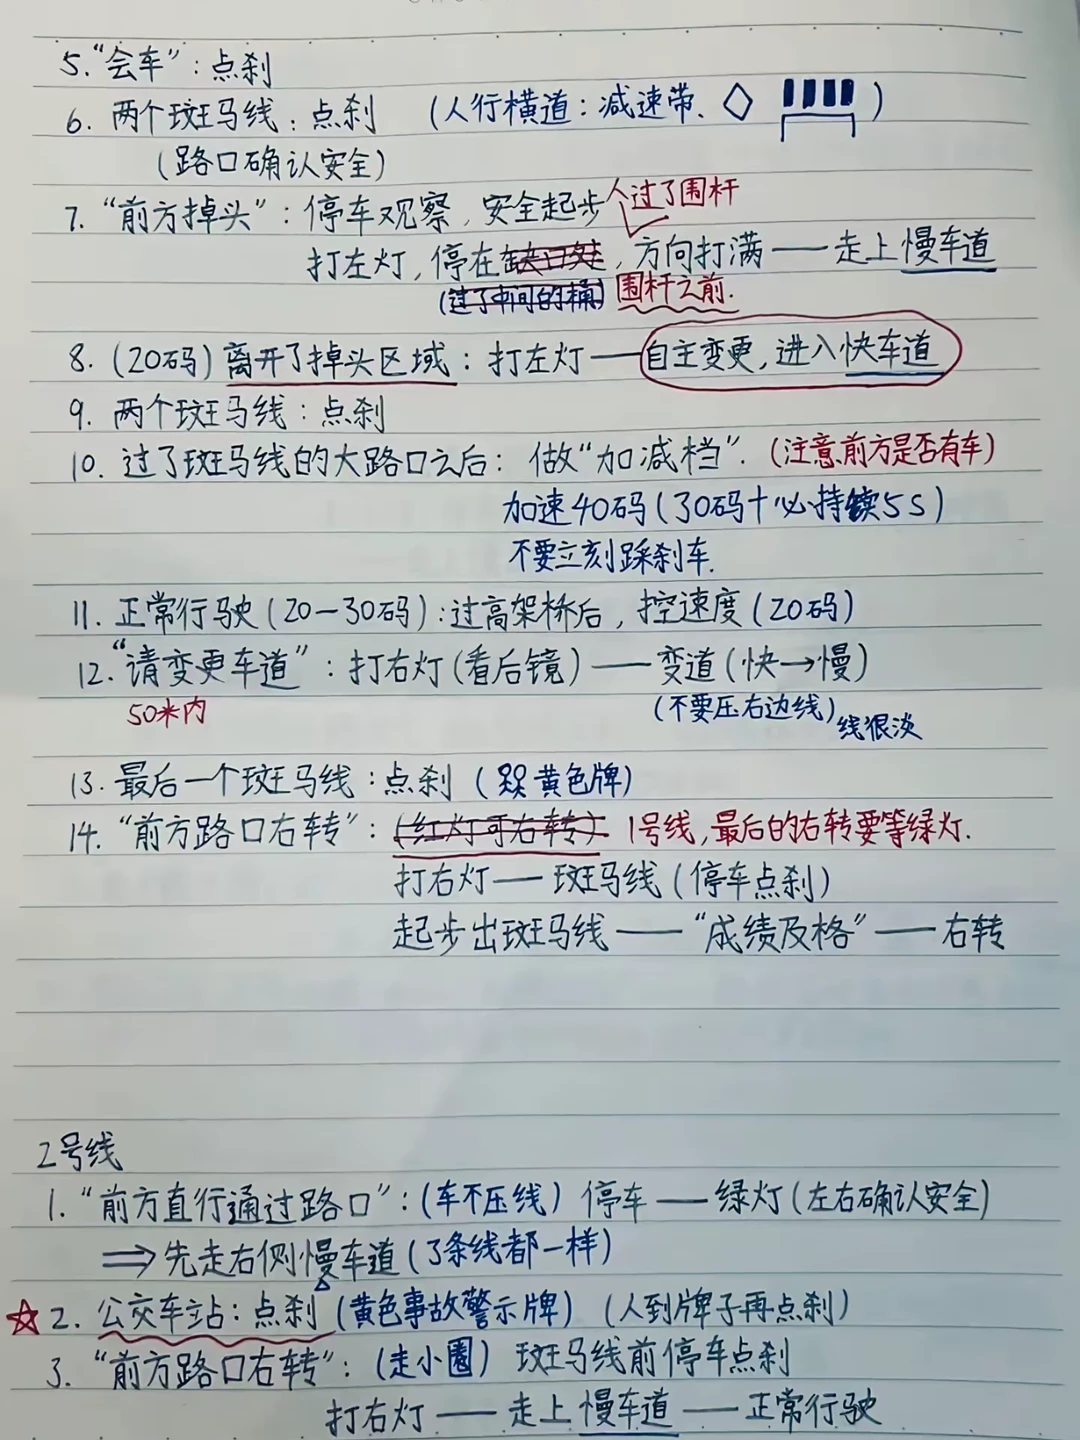 5.“会车”:点刹
6. 两个斑马线:点刹 (人行横道:减速带、◇)
(路口确认安全)
7. “前方掉头”:停车观察,安全起步 人过了围杆
打左灯,停在缺口处,方向打满——走上慢车道
(过了中间的桶) 围杆之前.
8. (20码)离开了掉头区域:打左灯——自主变更,进入快车道
9. 两个斑马线:点刹
10. 过了斑马线的大路口之后:做“加减档”.(注意前方是否有车)
加速40码(30码+必持续5S)
不要立刻踩刹车.
11. 正常行驶(20-30码):过高架桥后,控速度(20码)
12.“请变更车道”:打右灯(看后镜)——变道(快→慢)
50米内 (不要压右边线)线很淡
13. 最后一个斑马线:点刹(踩黄色牌)
14. “前方路口右转”:(红灯可右转) 1号线,最后的右转要等绿灯.
打右灯——斑马线(停车点刹)
起步出斑马线——“成绩及格”——右转
2号线
1. “前方直行通过路口”:(车不压线)停车——绿灯(左右确认安全)
⇒先走右侧慢车道(3条线都一样)
☆2. 公交车站:点刹(黄色事故警示牌)(人到牌子再点刹)
3. “前方路口右转”:(走小圈) 斑马线前停车点刹
打右灯——走上慢车道——正常行驶